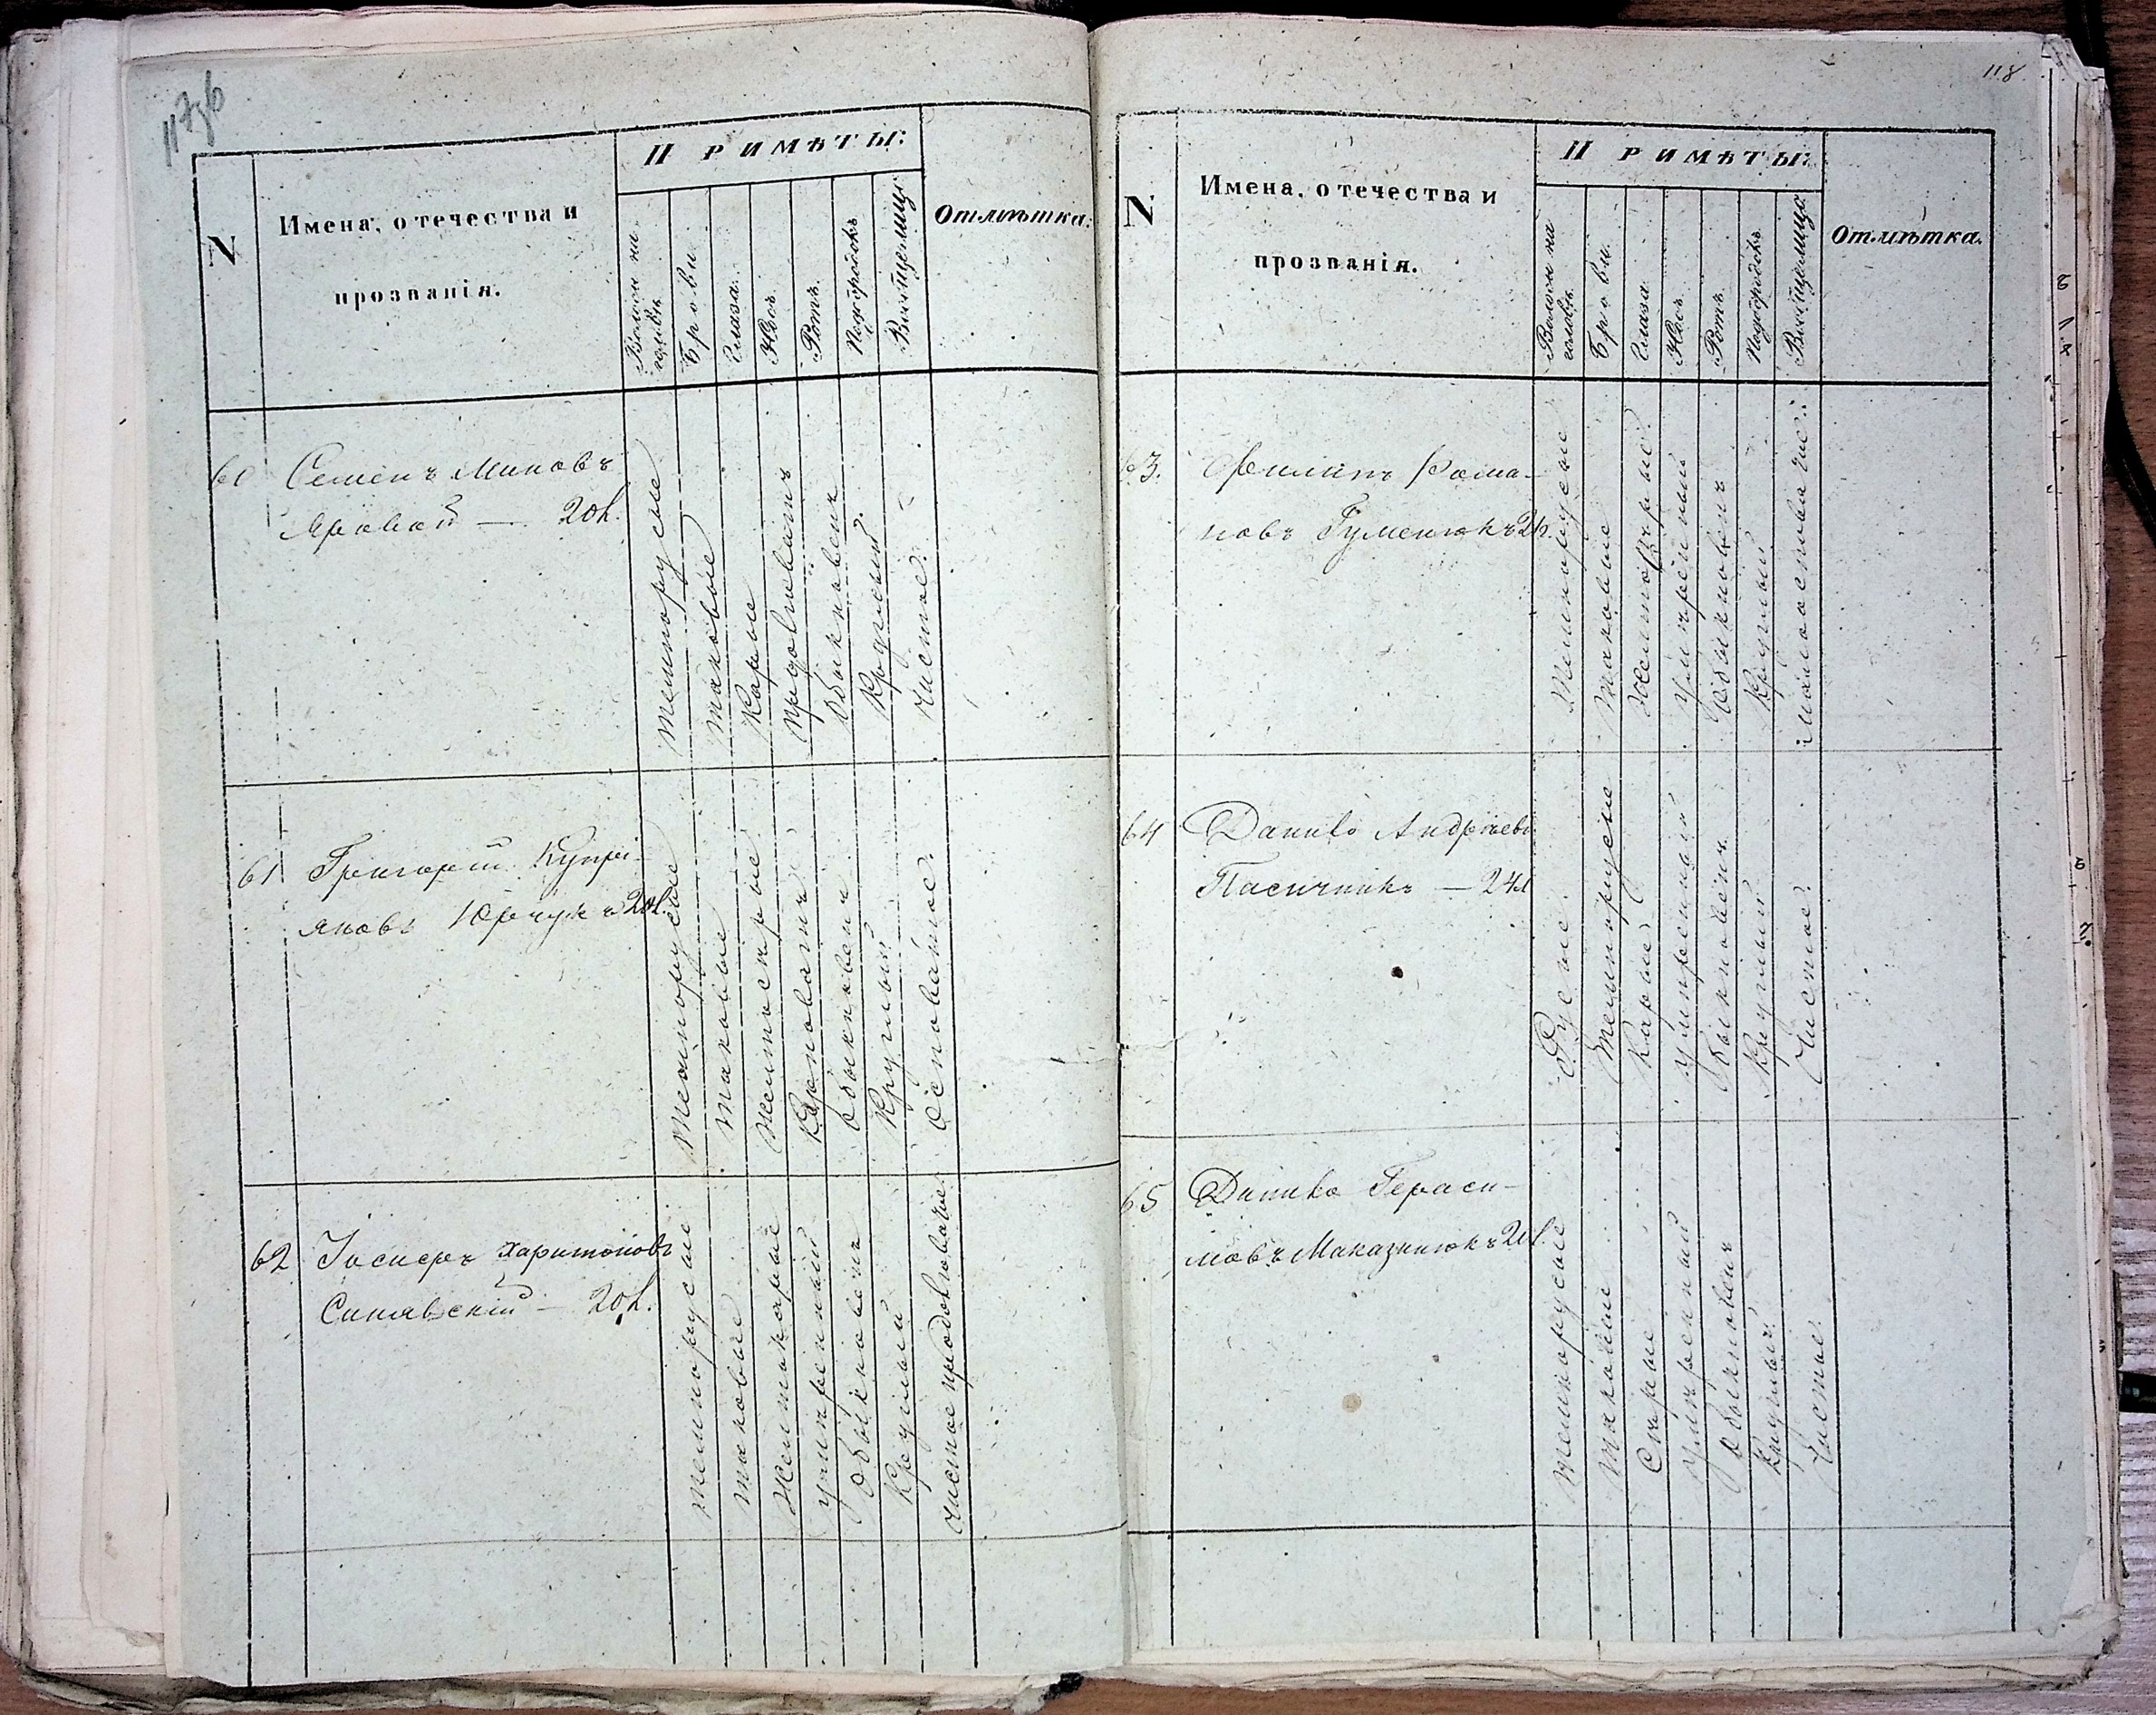 N
Имена, отечества и
прозванія.
Примѣты:
Волоси на
головѣ.
Брови.
Глаза.
Носъ.
Ротъ.
Подбородокъ
Вообще лице.
Отмѣтка.
60
Семенъ Миновъ
Яровой — 20 л.
темнорусые
таковые
Карые
продолговатъ
Обыкновенъ
Круглый
чистое.
61
Григорій Купрі-
яновъ Юрчукъ 20 л.
темнорусые
таковые
желтосѣрые
обыкновенъ
Круглый
62
Іосифъ Харитоновъ
Синявскій — 20 л.
темнорусые
таковые
Желтокарые
умѣренный
Обыкновенъ
Круглый
118
N
Имена, отечества и
прозванія.
Примѣты:
Волоси на
головѣ.
Брови.
Глаза.
Носъ.
Ротъ.
Подбородокъ
Вообще лице.
Отмѣтка.
63.
Филипъ Рома-
новъ Гуменюкъ
Темнорусые
таковые
Умѣренный
Обыкновенъ
Круглый
64
Данило Андрѣевъ
Пасичникъ — 24 л
Русые
темнорусые
Карые
умѣренный
Обыкновенъ
Круглый
Чистое.
65
Данило Гераси-
мовъ
темнорусые
таковые
Сѣрые
Умѣренный
Обыкновенъ
Круглый
Чистое.